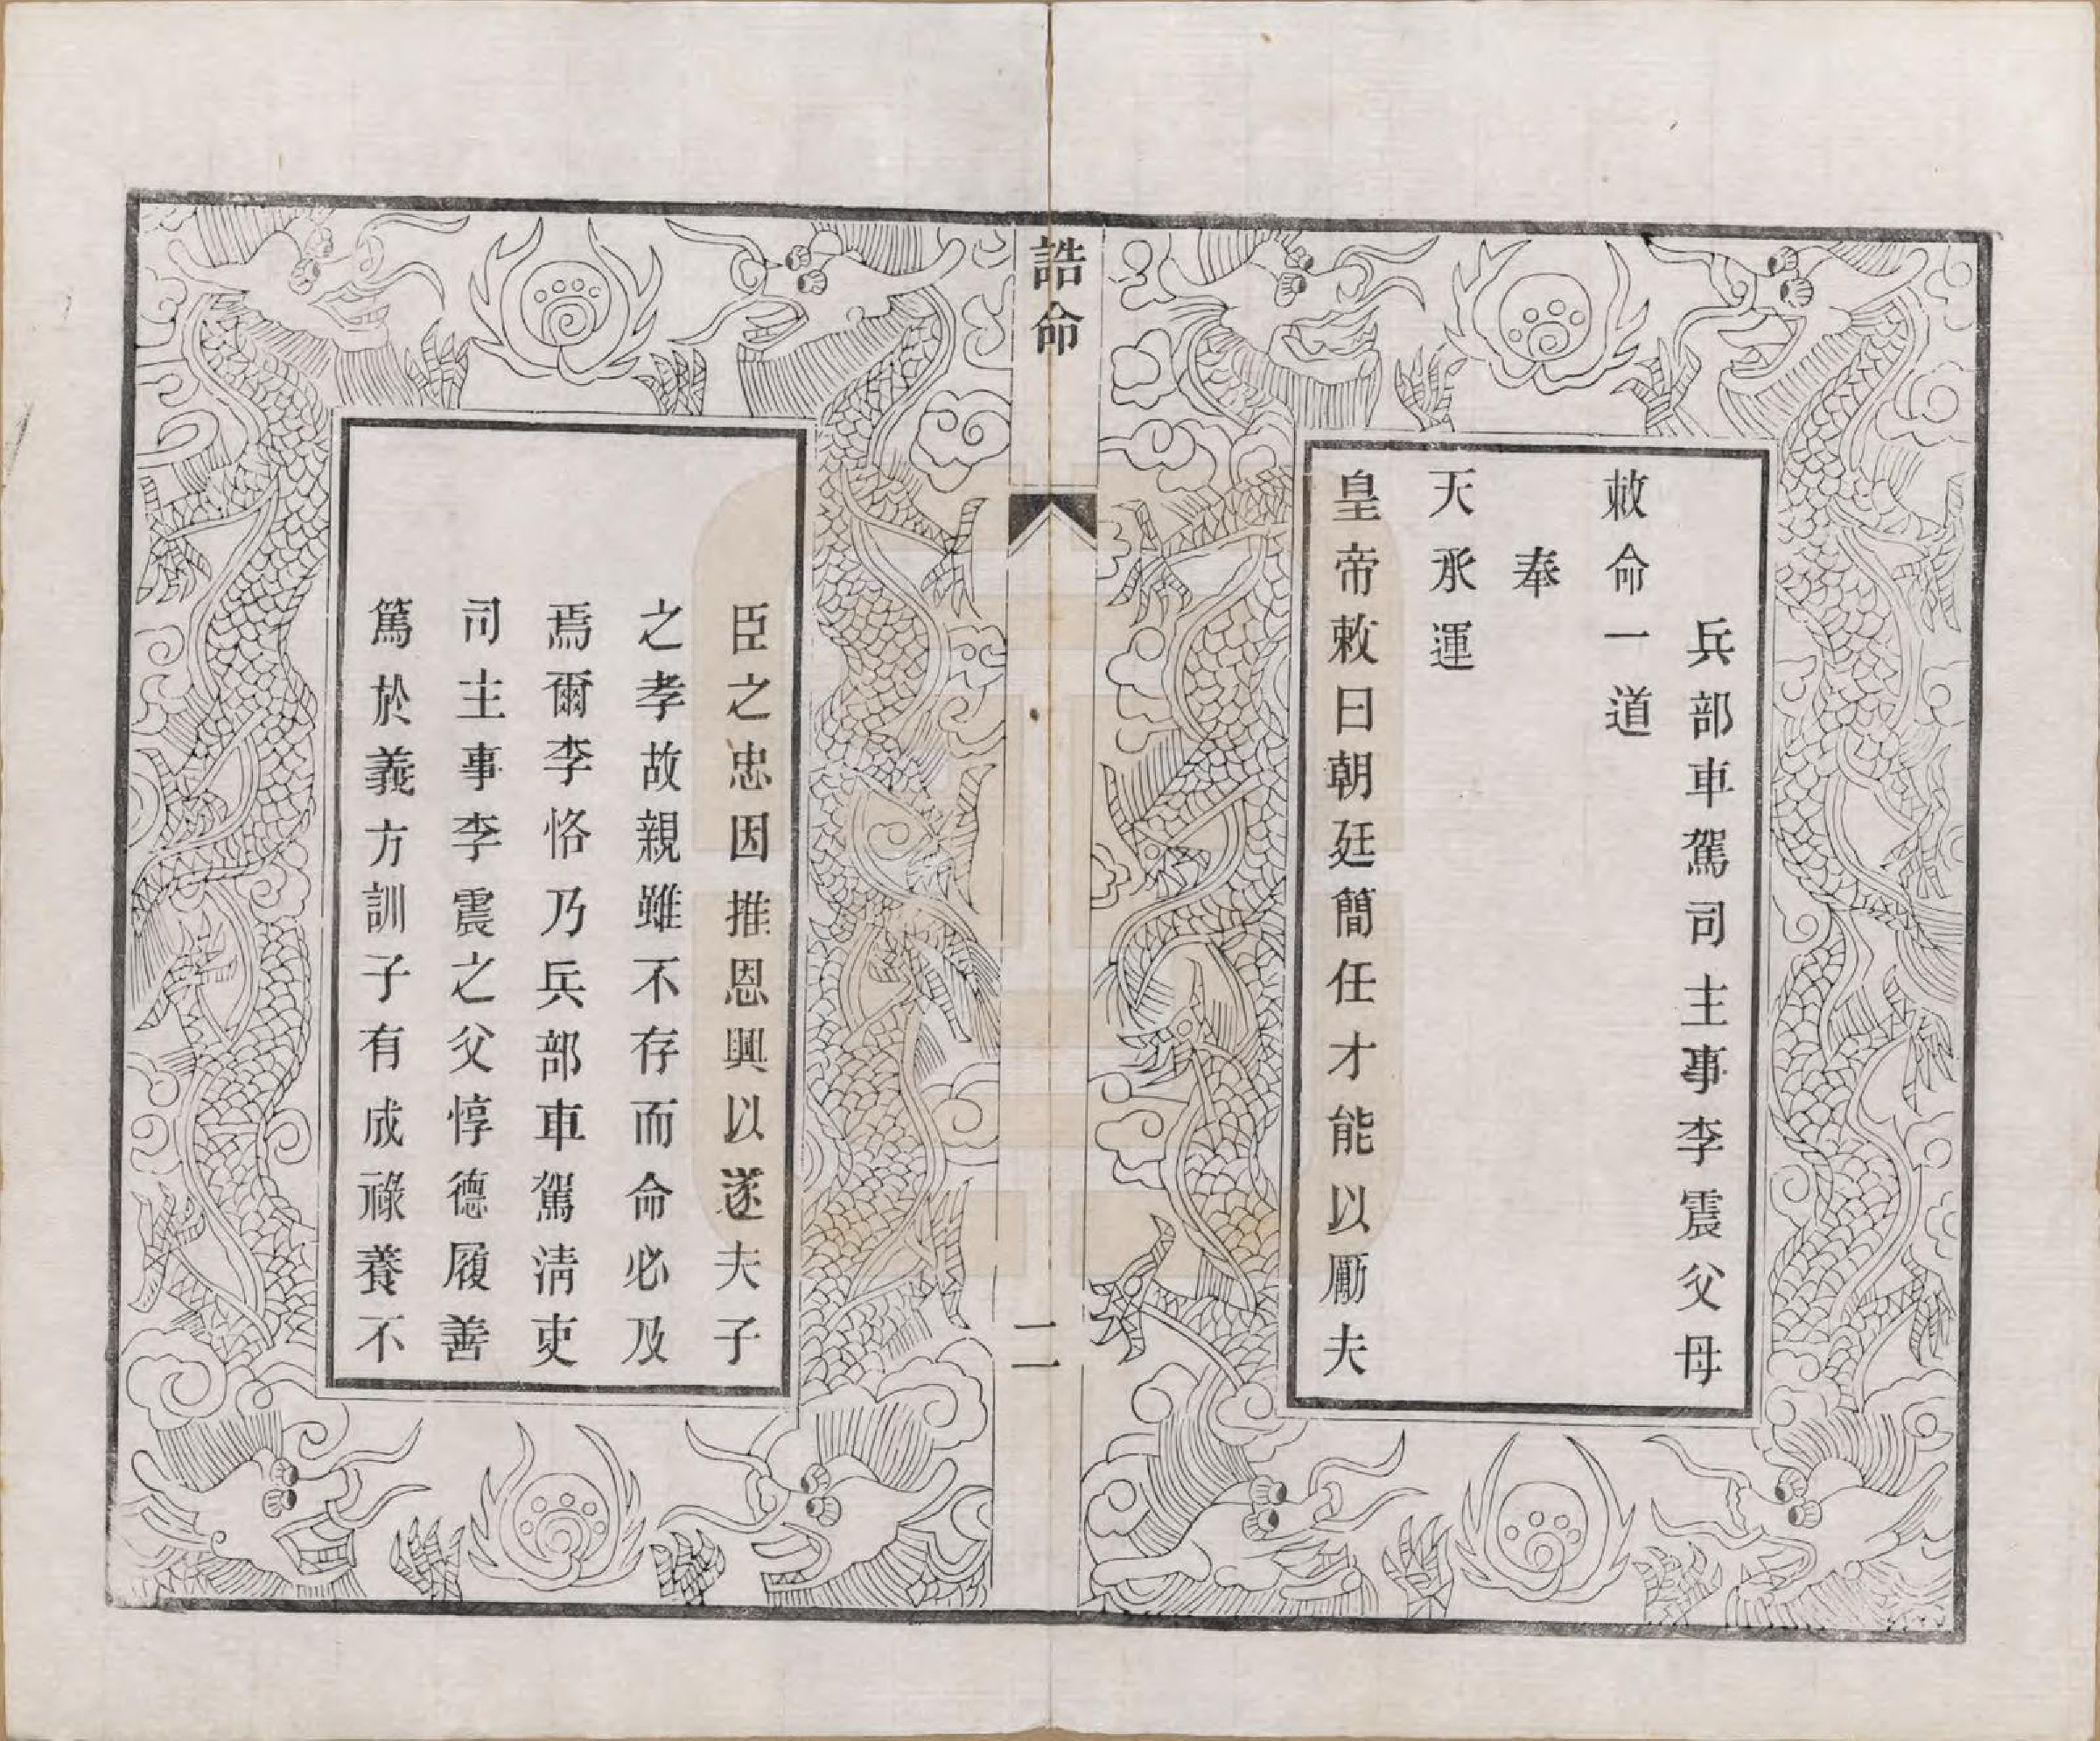 兵部車駕司主事李震父母
敕命一道
奉
天承運
皇帝敕曰朝廷簡任才能以勵夫
誥命
二
臣之忠因推恩興以遂夫子
之孝故親雖不存而命必及
焉爾李恪乃兵部車駕淸吏
司主事李震之父惇德履善
篤於義方訓子有成祿養不